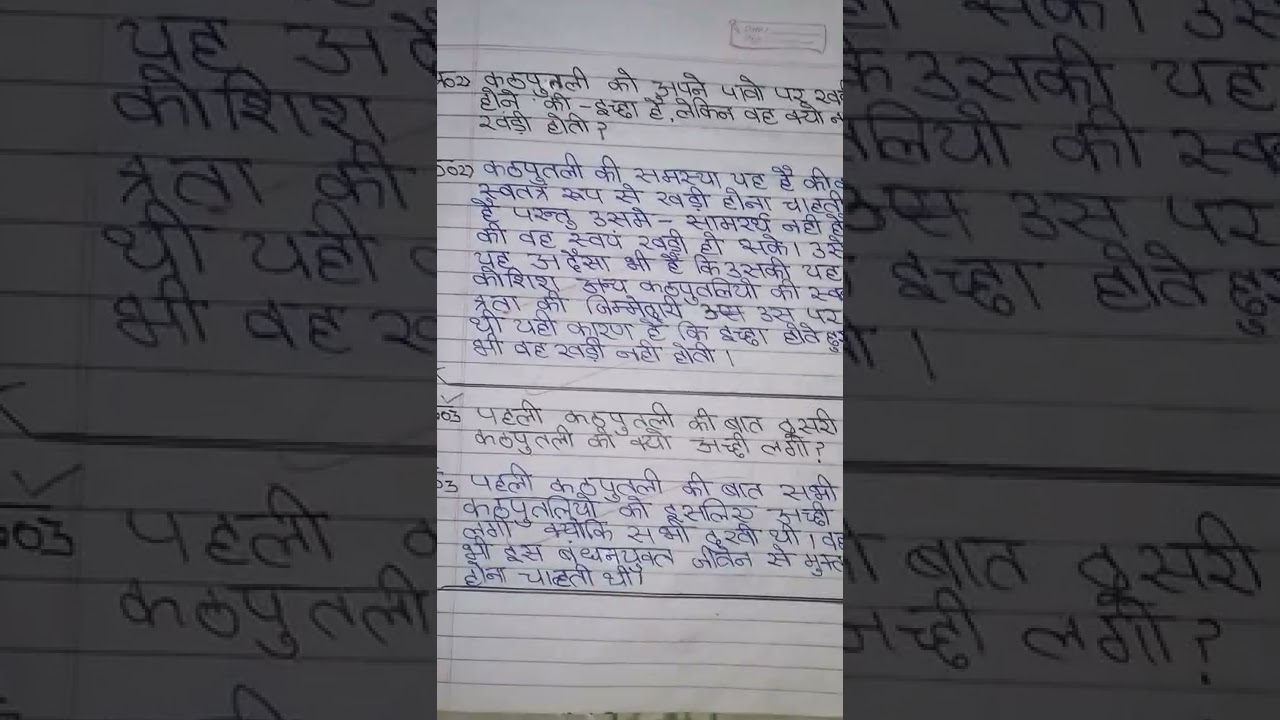 002) कठपुतली को अपने पावो पर
होने की - इच्छा है, लेकिन वह क्यो
खड़ी होती ?
002) कठपुतली की समस्या यह है की
स्वतंत्र रूप से खड़ी होना चाहती
है परन्तु उसमे - सामर्थ्य नही
की वह स्वयं खड़ी हो सके।
यह अदेंसा भी है कि उसकी यह
कोशिश अन्य कठपुतलियो की
त्रता की जिम्मेदारी उस पर
थी यही कारण है कि इच्छा होते हुए
भी वह खड़ी नही होती।
003 पहली कठपुतली की बात दूसरी
कठपुतली को क्यो अच्छी लगी?
03 पहली कठपुतली की बात सभी
कठपुतलियो को इसलिए अच्छी
लगी क्योकि सभी दुखी थी।
भी इस बंधनयुक्त जीवन से
होना चाहती थी।